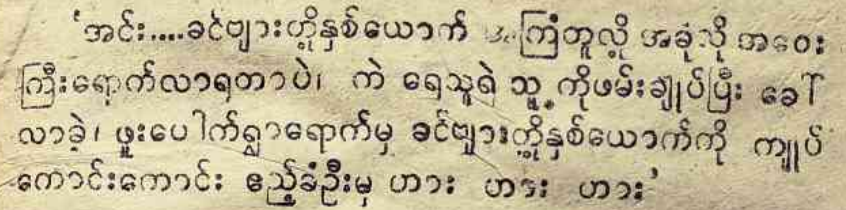 'အင်း....ခင်ဗျားတို့နှစ်ယောက် အကြံတူလို့ အခုလို အဝေး
ကြီးရောက်လာရတာပဲ၊ ကဲ ရေသူရဲ သူ့ကိုဖမ်းချုပ်ပြီး ခေါ်
လာခဲ့၊ ဖူးပေါက်ရွာရောက်မှ ခင်ဗျားတို့နှစ်ယောက်ကို ကျုပ်
ကောင်းကောင်း ဧည့်ခံဦးမှ ဟား ဟား ဟား'